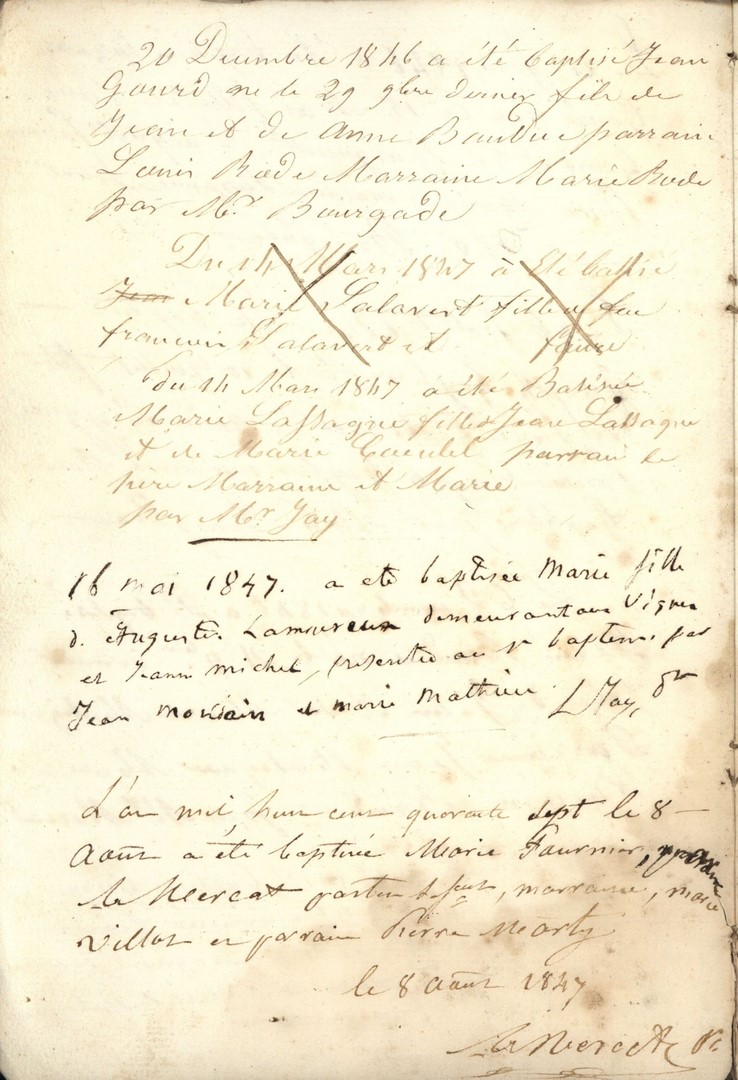 20 Decembre 1846 a été baptisé Jean
Gourd ne le 29 9bre dernier fils de
Jean et de Anne Baudue parrain
Louis Bode Marraine Marie Bode
par Mr. Bourgade
Du 14 Mars 1847 à été
Jean Marie Salavert fille feu
francois Salavert et faure
Du 14 Mars 1847 a été
Marie Lassagne fille d Jean Lassagne
et de Marie parrain le
père Marraine et Marie
par Mr Jay
16 mai 1847. a ete baptisée Marie fille
d. Auguste Lamoureux demeurant aux Vignes
et Jeanne michel, presentée au st bapteme par
Jean et marie Mathieu. L Jay, dr
L'an mil huit cent quarante sept le 8
Août a été baptisée Marie Fournier,
le Mercat, marraine, marie
Villot et parrain Pierre Marty
le 8 août 1847